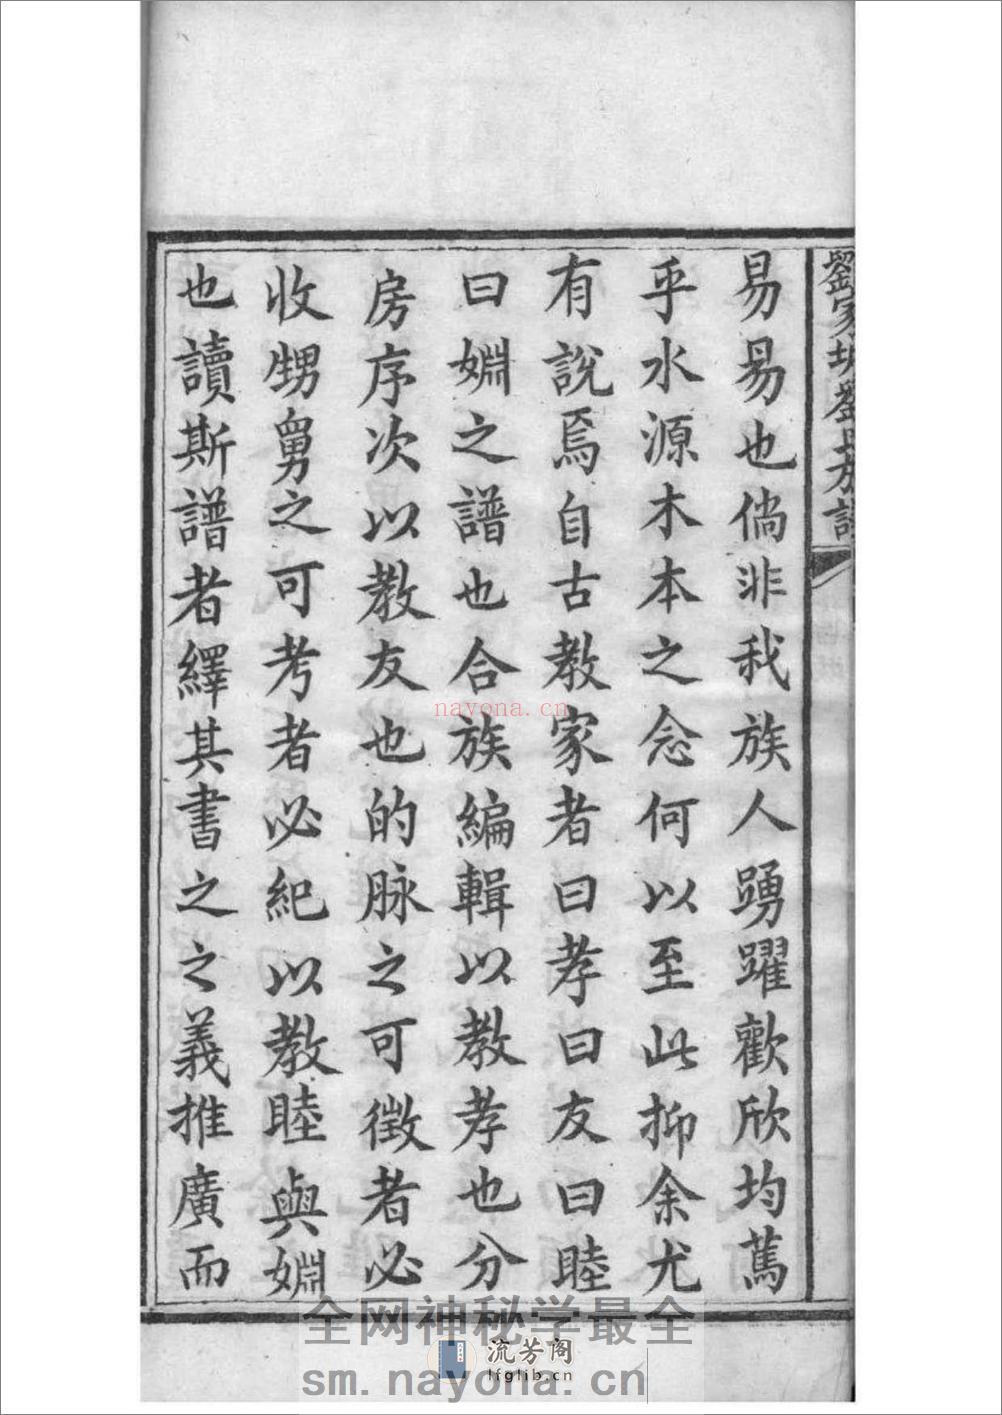 劉家埦劉氏族譜
易易也倘非我族人踴躍歡欣均萬
乎水源木本之念何以至此抑余尤
有說焉自古教家者曰孝曰友曰睦
曰婣之譜也合族編輯以教孝也分
房序次以教友也的脉之可徵者必
收甥舅之可考者必紀以教睦與婣
也讀斯譜者繹其書之之義推廣而
nayona.cn
全网神秘学最全
流芳阁
lfglib.cn
sm.nayona.cn